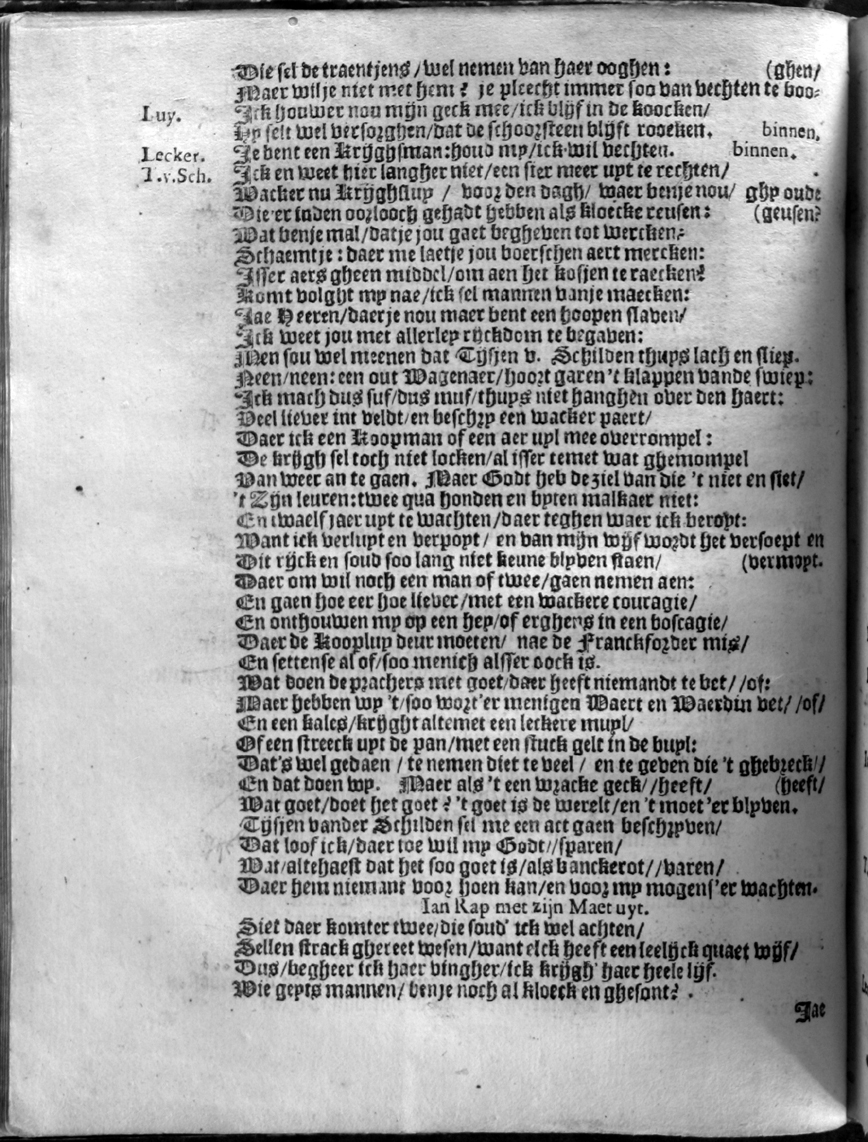 Die sel de traentjens/wel nemen van haer ooghen: (ghen/
Maer wil je niet met hem? je pleecht immer soo van vechten te boo-
Luy. Ick houwer nou mijn geck mee/ick blijf in de koocken/
Hy selt wel versorghen/dat de schoorsteen blijft roocken. binnen.
Lecker. Je bent een Krijghsman:houd my/ick wil vechten. binnen.
T.v.Sch. Ick en weet hier langher niet/een sier meer uyt te rechten/
Wacker nu Krijghsluy / voor den dagh/ waer benje nou/ ghy oude
Die'er inden oorlooch gehadt hebben als kloecke reusen: (geusen?
Wat benje mal/datje jou gaet begheven tot wercken?
Schaemtje: daer me laetje jou boerschen aert mercken:
Isser aers gheen middel/om aen het kosjen te raecken?
Komt volght my nae/ick sel mannen vanje maecken:
Jae Heeren/daerje nou maer bent een hoopen slaven/
Ick weet jou met allerley rijckdom te begaven:
Men sou wel meenen dat Tijsjen v. Schilden thuys lach en sliep.
Neen/neen: een out Wagenaer/hoort garen 't klappen vande swiep:
Ick mach dus suf/dus muf/thuys niet hanghen over den haert:
Veel liever int veldt/en beschry een wacker paert/
Daer ick een Koopman of een aer uyl mee overrompel:
De krijgh sel toch niet locken/al isser temet wat ghemompel
Van weer an te gaen. Maer Godt heb de ziel van die 't niet en siet/
't Zijn leuren:twee qua honden en byten malkaer niet:
En twaelf jaer uyt te wachten/daer teghen waer ick beroyt:
Want ick verluyt en verpoyt/ en van mijn wijf wordt het versoept en
Dit rijck en soud soo lang niet keune blyven staen/ (vermoyt.
Daer om wil noch een man of twee/gaen nemen aen:
En gaen hoe eer hoe liever/met een wackere couragie/
En onthouwen my op een hey/of erghens in een boscagie/
Daer de Kooplup deur moeten/ nae de Franckforder mis/
En settense al of/soo menich alsser oock is.
Wat doen de prachers met goet/daer heeft niemandt te bet/ /of:
Maer hebben wy 't/soo wort'er menigen Waert en Waerdin bet/ /of/
En een kales/krijght altemet een leckere muyl/
Of een streeck uyt de pan/met een stuck gelt in de buyl:
Dat's wel gedaen / te nemen diet te veel / en te geven die 't ghebreck//
En dat doen wy. Maer als 't een wracke geck//heeft/ (heeft/
Wat goet/doet het goet? 't goet is de werelt/en 't moet'er blyven.
Tijsjen vander Schilden sel me een act gaen beschryven/
Dat loof ick/daer toe wil my Godt//sparen/
Wat/altehaest dat het soo goet is/als banckerot//varen/
Daer hem niemant voor hoen kan/en voor my mogens'er wachten.
Ian Rap met zijn Maet uyt.
Siet daer komter twee/die soud' ick wel achten/
Sellen strack ghereet wesen/want elck heeft een leelijck quaet wijf/
Dus/begheer ick haer vingher/ick krijgh' haer heele lijf.
Wie geyts mannen/ benje noch al kloeck en ghesont?
Jae